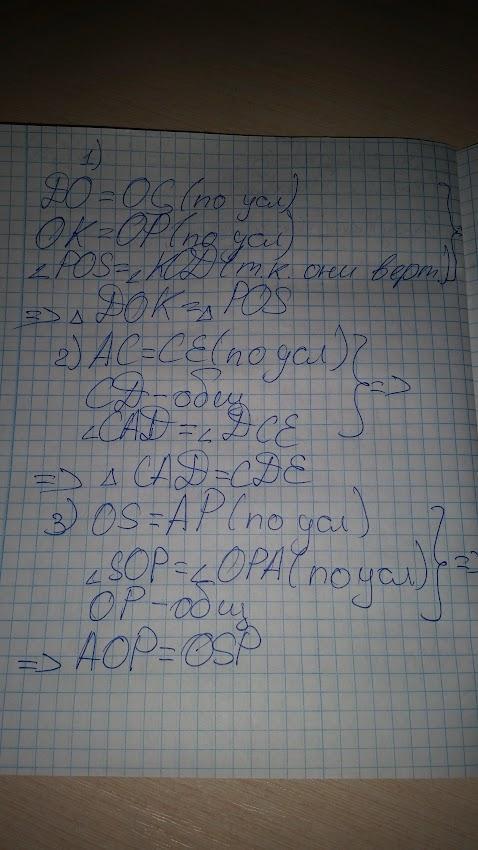 1)
DO=OC(по усл)
OK=OP(по усл)
∠POS=∠KOD(т.к. они верт.)
=> △DOK=△POS
2) AC=CE(по усл)
CD-общ
∠CAD=∠DCE
=>
=> △CAD=CDE
3) OS=AP(по усл)
∠SOP=∠OPA(по усл)
=>
OP-общ
=> AOP=OSP